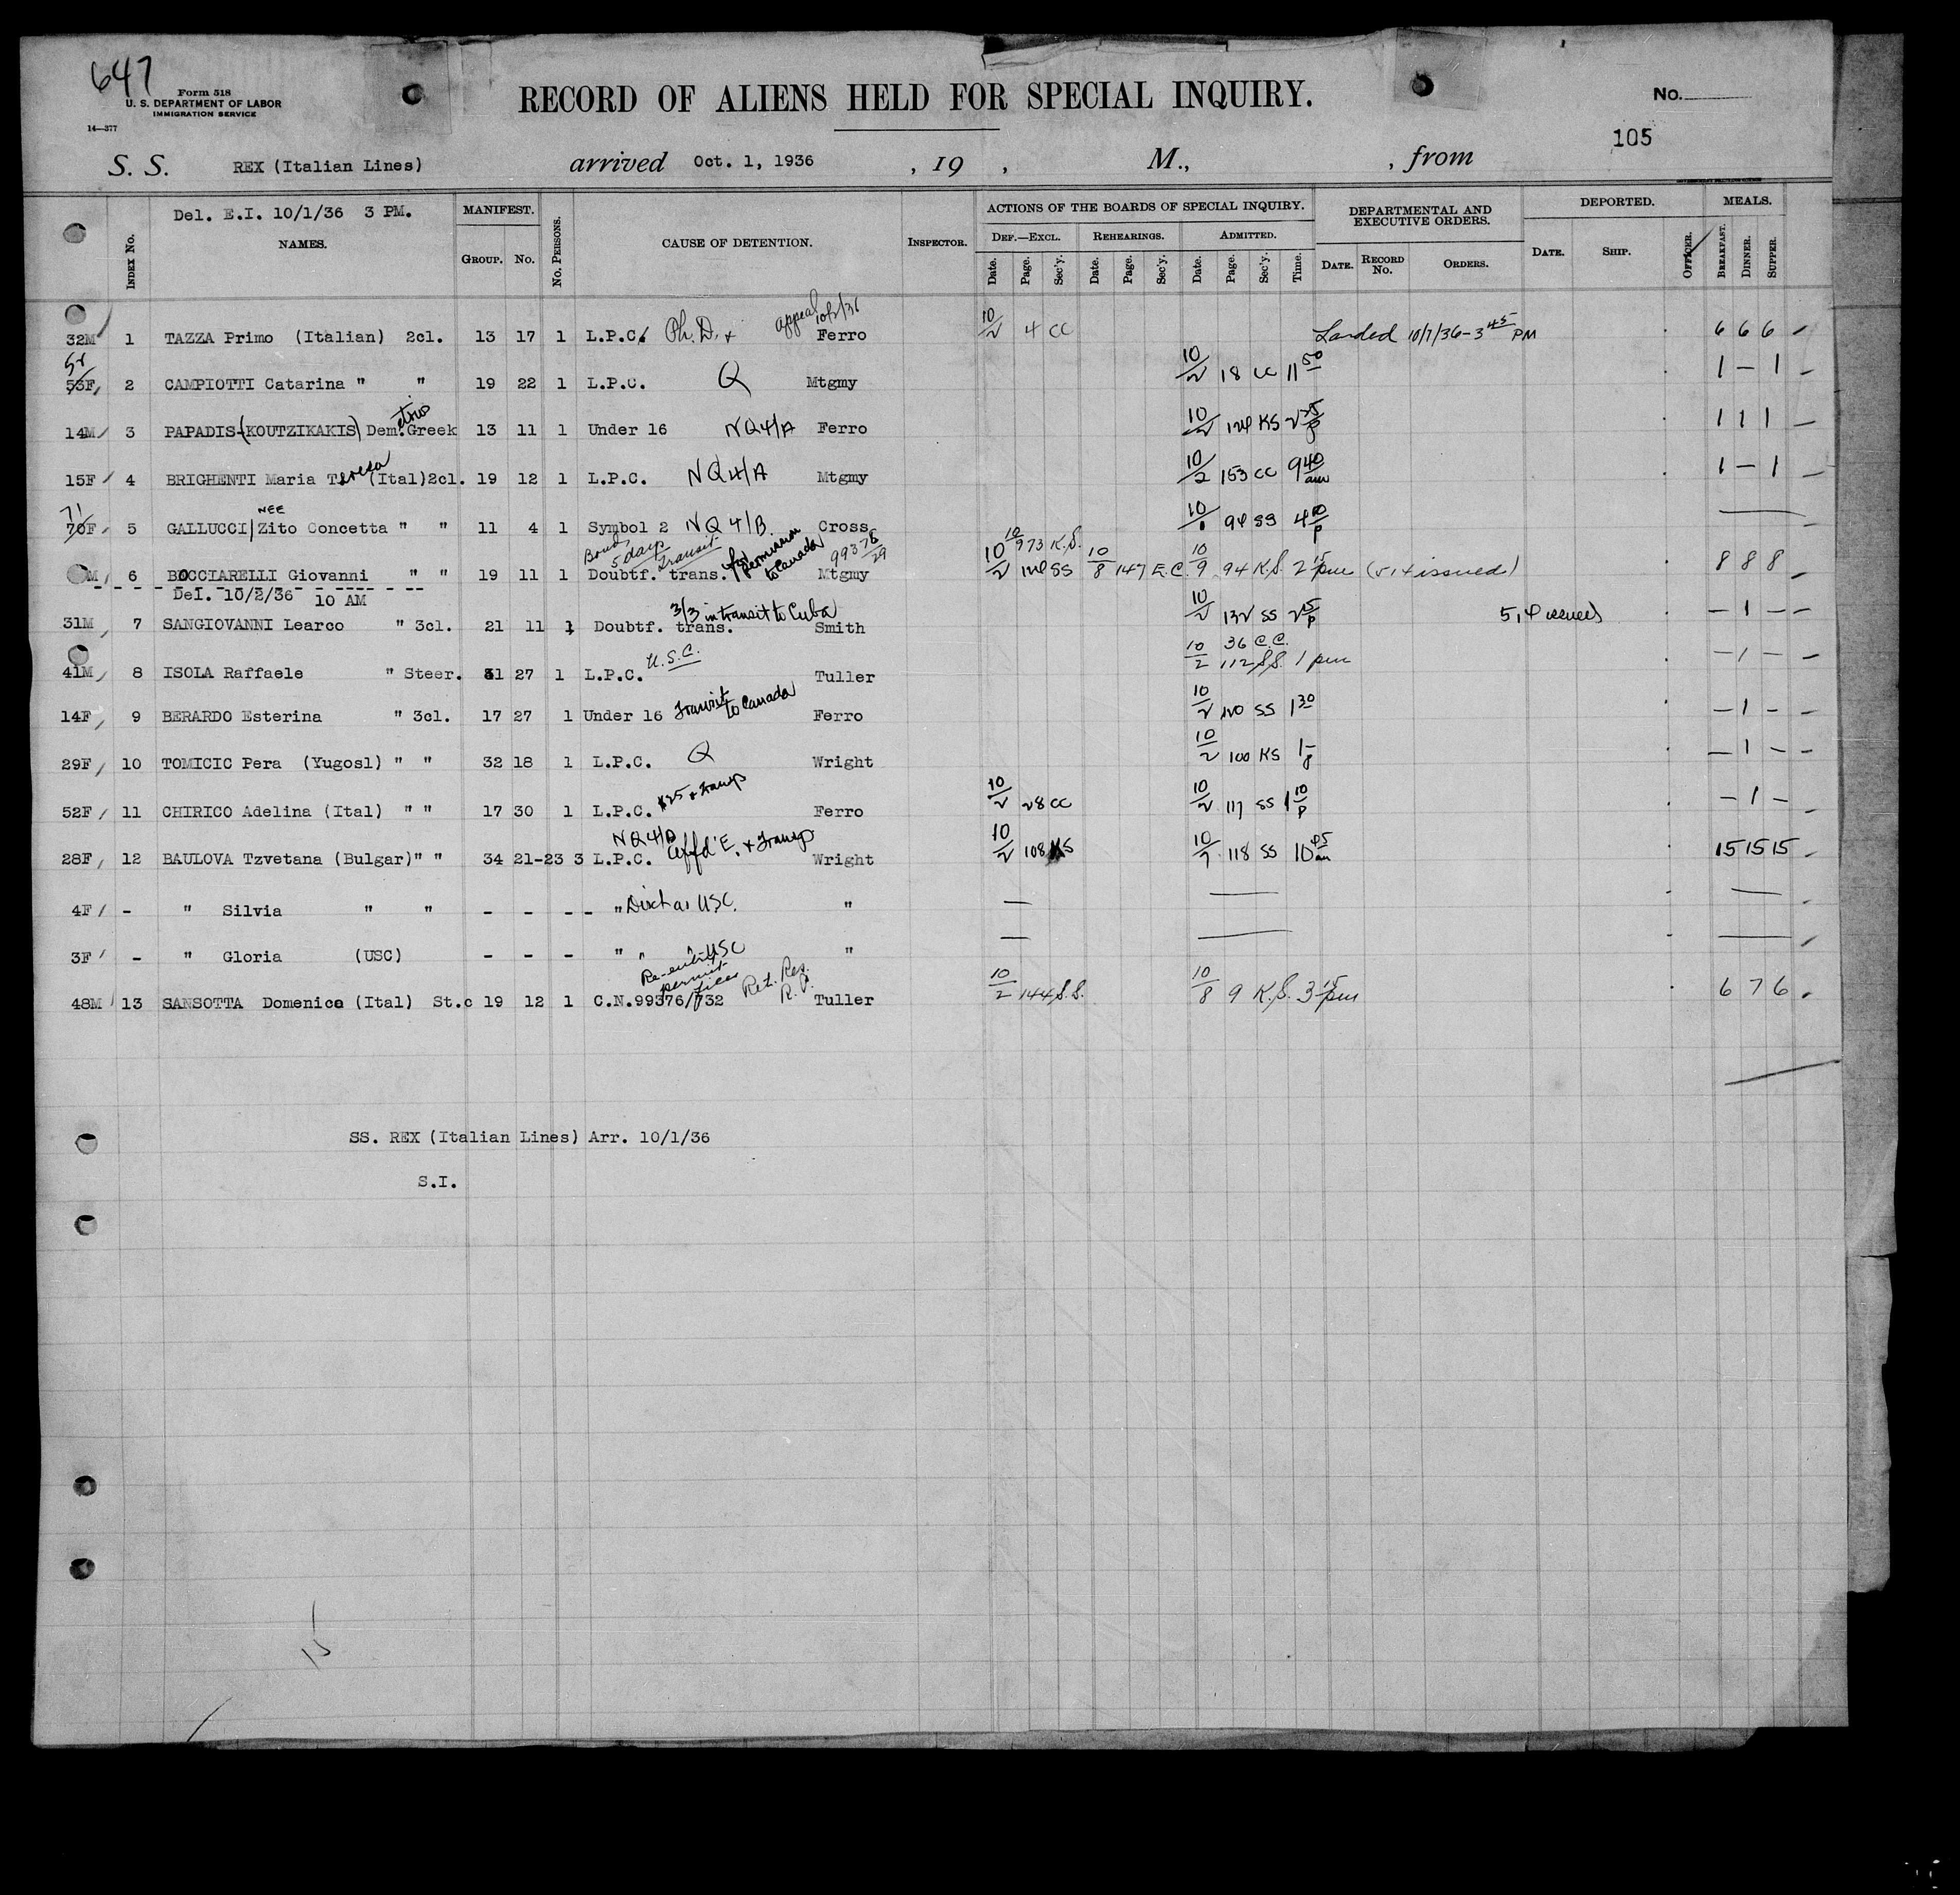 647
Form 518
U. S. DEPARTMENT OF LABOR
IMMIGRATION SERVICE
14—377
RECORD OF ALIENS HELD FOR SPECIAL INQUIRY.
No.
105
S. S. REX (Italian Lines) arrived Oct. 1, 1936 , 19 , M., , from
Del. E.I. 10/1/36 3 PM.
INDEX No. NAMES. MANIFEST. GROUP. No. No. PERSONS. CAUSE OF DETENTION. INSPECTOR. ACTIONS OF THE BOARDS OF SPECIAL INQUIRY. DEF.—EXCL. Date. Page. Sec'y. REHEARINGS. Date. Page. Sec'y. ADMITTED. Date. Page. Sec'y. Time. DEPARTMENTAL AND EXECUTIVE ORDERS. DATE. RECORD No. ORDERS. DEPORTED. DATE. SHIP. OFFICER. MEALS. BREAKFAST. DINNER. SUPPER.
32M 1 TAZZA Primo (Italian) 2cl. 13 17 1 L.P.C. Ph. D. + appeal Ferro 10/2 4 CC Landed 10/7/36-3 45 PM 6 6 6
53F 2 CAMPIOTTI Catarina " " 19 22 1 L.P.C. Q Mtgmy 10/2 18 CC 11 50 1 — 1
14M 3 PAPADIS-(KOUTZIKAKIS) Demetrios Greek 13 11 1 Under 16 NQ4/A Ferro 10/2 124 KS 1 1 1
15F 4 BRIGHENTI Maria Teresa (Ital)2cl. 19 12 1 L.P.C. NQ4/A Mtgmy 10/2 153 CC 9 40 am 1 — 1
71
70F 5 GALLUCCI NEE Zito Concetta " " 11 4 1 Symbol 2 NQ 4/B. Cross 10/1 94 SS 4 10 p
Bond 5 days Transit for permission to Canada 99378/29 10/9 73 K.S.
M 6 BOCCIARELLI Giovanni " " 19 11 1 Doubtf. trans. Mtgmy 10/2 124 SS 10/8 147 E.C. 10/9 94 K.S. 2 15 pm (5,4 issued) 8 8 8
Del. 10/2/36 10 AM
31M 7 SANGIOVANNI Learco " 3cl. 21 11 1 Doubtf. trans. 3/3 in transit to Cuba Smith 10/2 132 SS 2 15 p 5,4 issued — 1 —
36 C.C.
41M 8 ISOLA Raffaele " Steer. 31 27 1 L.P.C. U.S.C. Tuller 10/2 112 S.S. 1 pm — 1 —
14F 9 BERARDO Esterina " 3cl. 17 27 1 Under 16 Transit to Canada Ferro 10/2 120 SS 1 30 — 1 —
29F 10 TOMICIC Pera (Yugosl) " " 32 18 1 L.P.C. Q Wright 10/2 100 KS 1 p — 1 —
52F 11 CHIRICO Adelina (Ital) " " 17 30 1 L.P.C. $25 + Transp Ferro 10/2 28 CC 10/2 117 SS 1 10 p — 1 —
28F 12 BAULOVA Tzvetana (Bulgar)" " 34 21-23 3 L.P.C. NQ4/A Affd E. + Transp Wright 10/2 108 KS 10/7 118 SS 10 05 am 15 15 15
4F - " Silvia " " - - - - " Disch as USC. "
3F - " Gloria (USC) - - - " " " USC "
48M 13 SANSOTTA Domenico (Ital) St.c 19 12 1 C.N.99376/732 Re-entry permit Ret. Res. R.P. Tuller 10/2 144 S.S. 10/8 9 K.S. 3 15 pm 6 7 6
SS. REX (Italian Lines) Arr. 10/1/36
S.I.
15